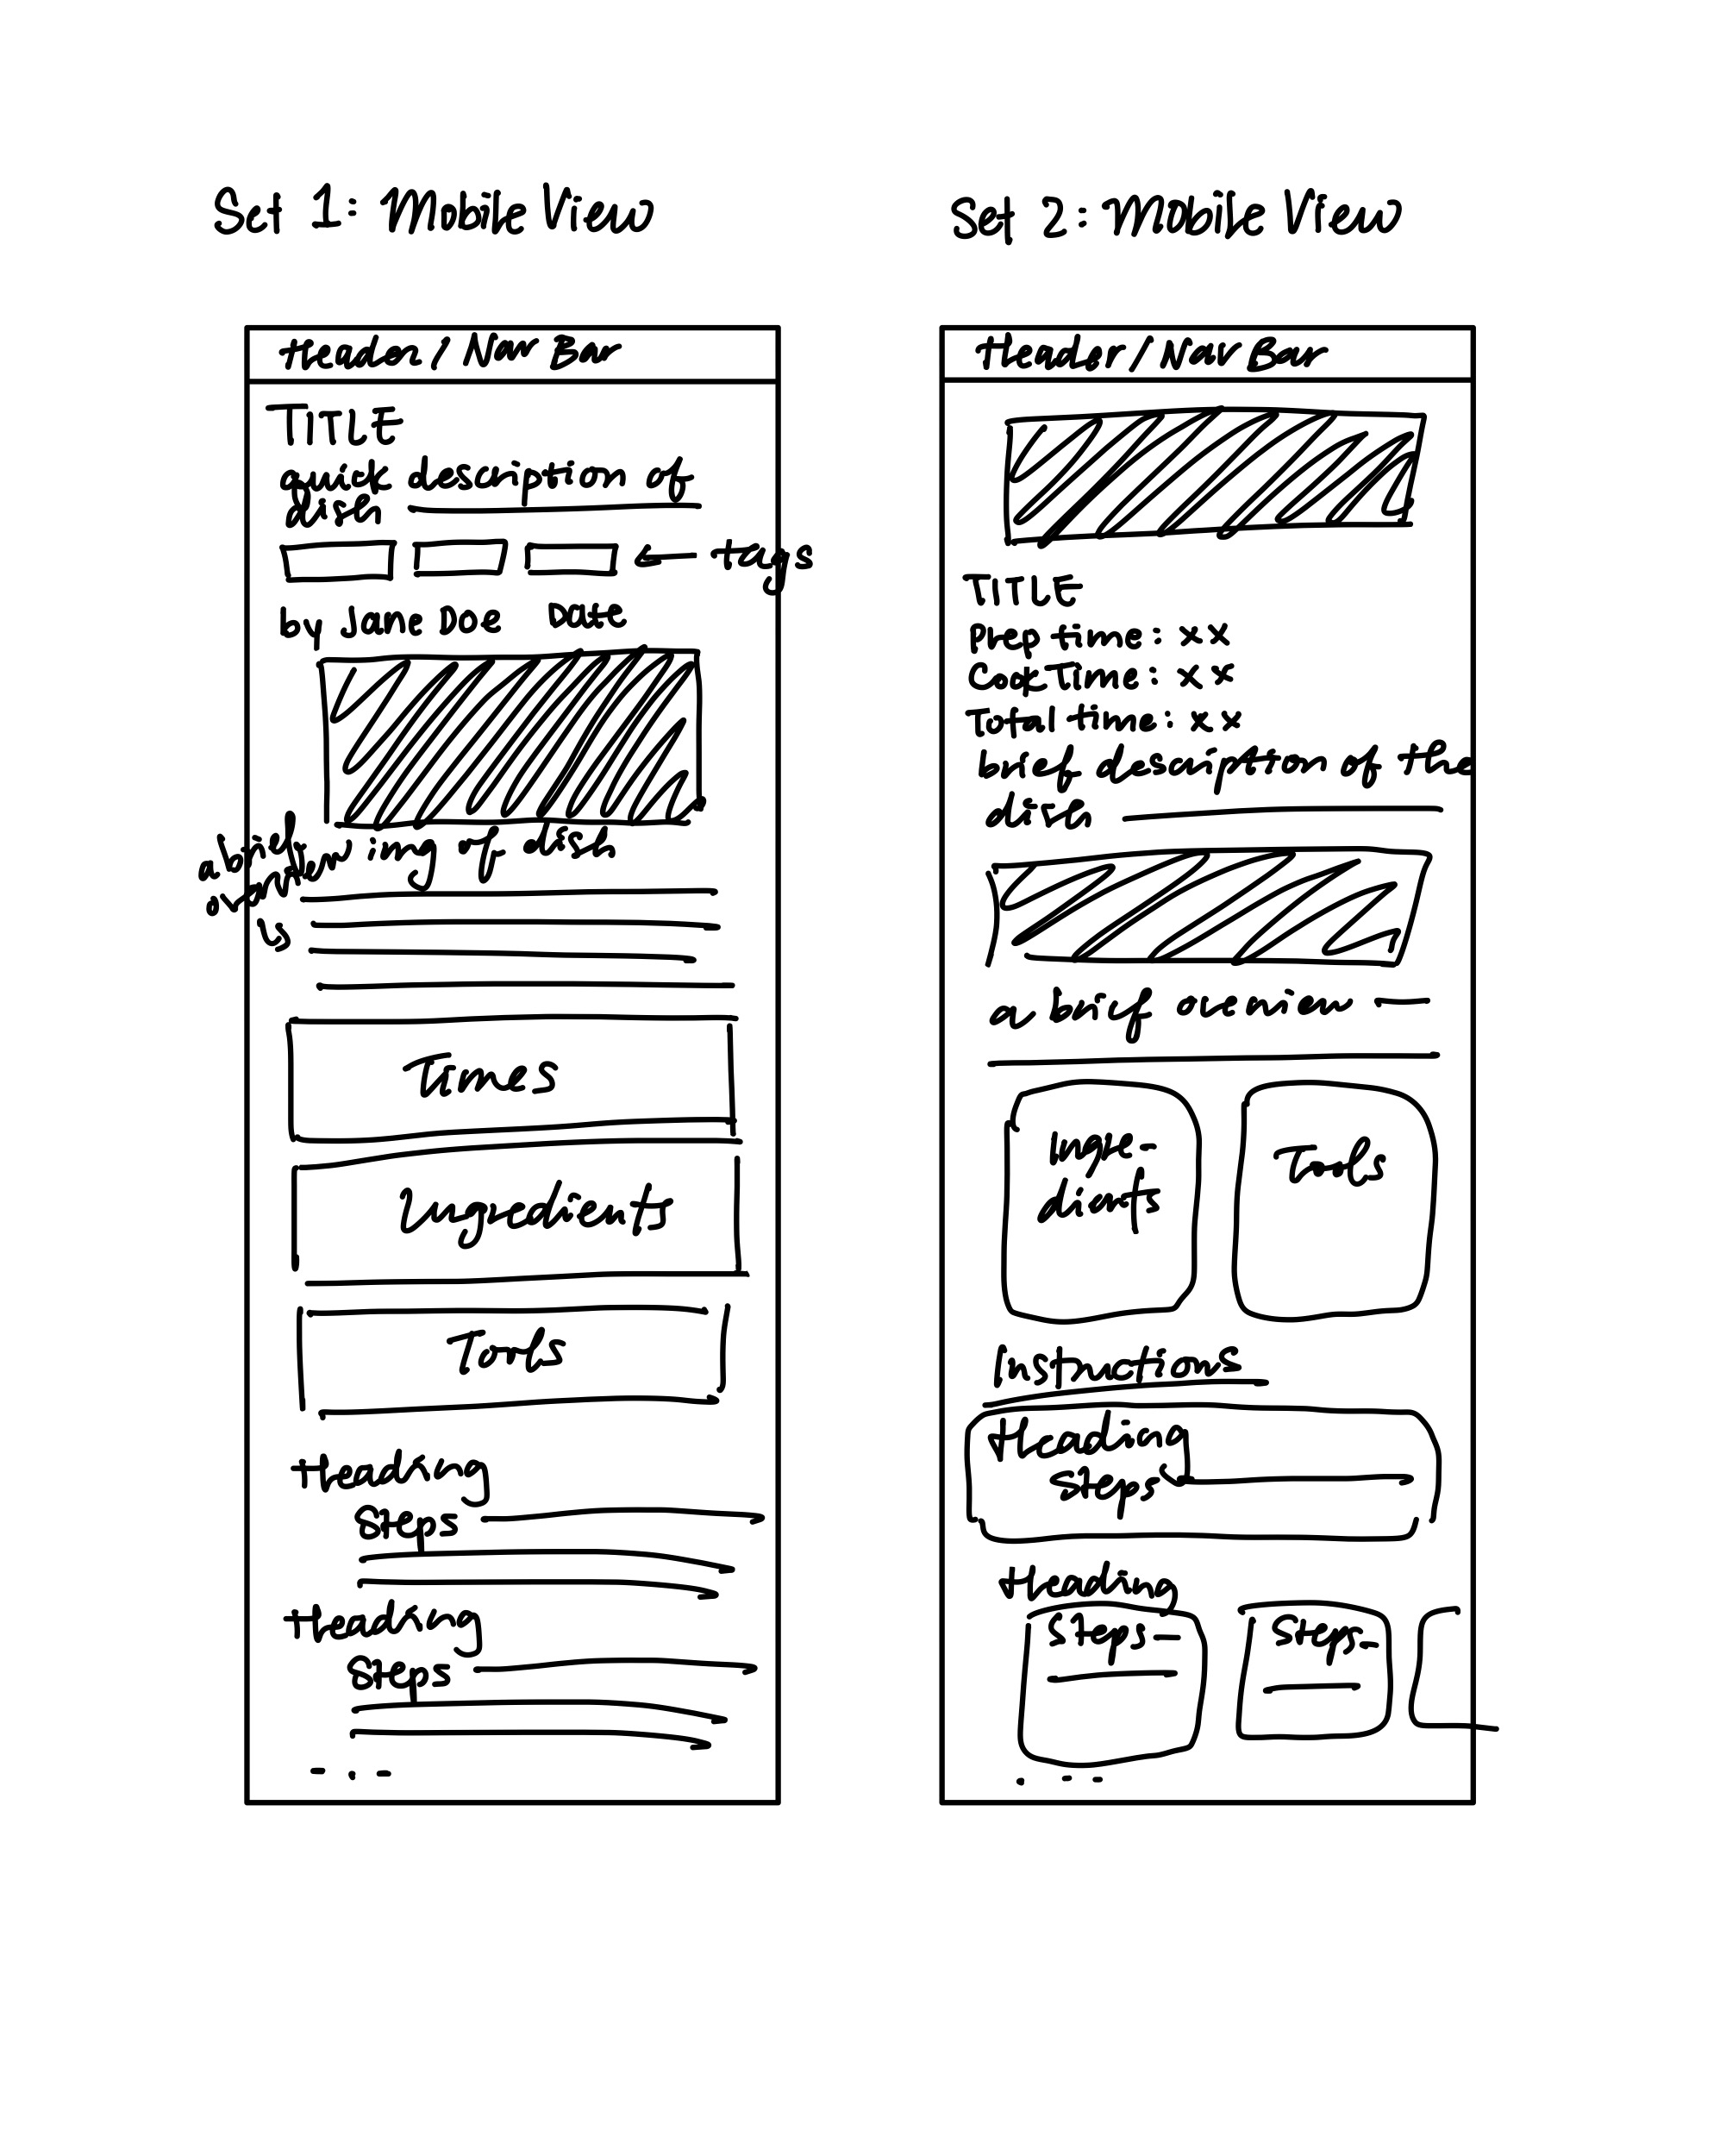 Set 1: Mobile View
Header / Nav Bar
TITLE
quick description of
dish
← tags
by Jane Doe Date
img of dish
a brief
overview
is
Times
Ingredients
Tools
Heading
Steps
Heading
Steps
...
Set 2: Mobile View
Header / Nav Bar
TITLE
Prep time: xx
Cook Time: xx
Total time: xx
brief description of the
dish
a brief overview
Ingre-
dients
Tools
Instructions
Heading
Steps
Heading
Steps
Steps
...